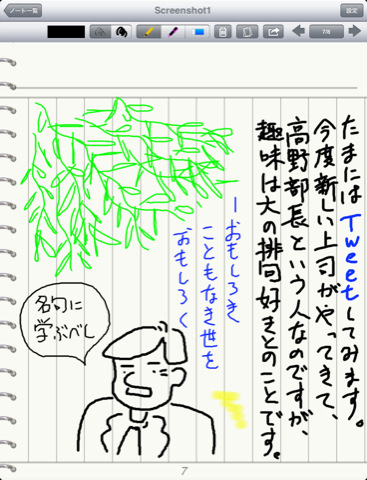 ノート一覧
Screenshot1
設定
7/8
たまにはTweetしてみます。
今度新しい上司がやってきて、
高野部長という人なのですが、
趣味は大の俳句好きとのことです。
ーおもしろき
こともなき世を
おもしろく
名句に
学ぶべし
7